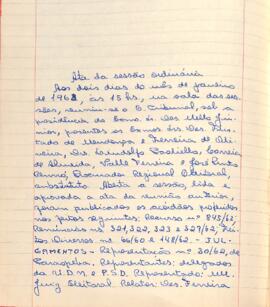 Ata da sessão ordinária
Aos dois dias do mês de janeiro
de 1963, às 15 hs, na sala das ses-
sões, reuniu-se o E. Tribunal, sob a
presidência do Exmo. sr. Des. Mello Jú-
nior, presentes os Exmos. srs. Des.
tado de Mendonça e Ferreira de Oli-
veira, Drs. Coelho, Correia
de Almeida, Valle Ferreira e José Pinto
Procurador Regional Eleitoral,
substituto. Aberta a sessão, lida e
aprovada a ata da reunião anterior,
foram publicados os acórdãos proferidos
nos feitos seguintes: Recurso nº 845/62;
324, 322, 323 e 327/62; Fei-
tos Diversos nº 66/60 e 148/62. - JUL-
GAMENTOS - Representação nº 30/62, de
Carangola. Representantes: delegados
da U.D.N. e P.S.D. Representado: M.
Juiz Eleitoral. Relator: Des. Ferreira